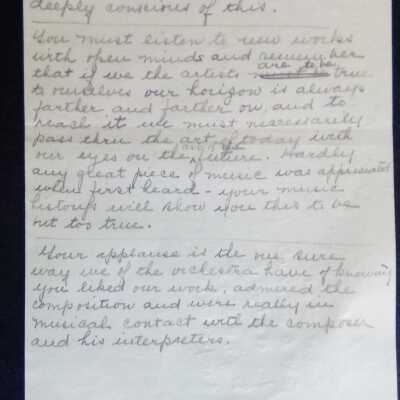 deeply conscious of this.
You must listen to new works
with open minds and remember
that if we the artists must be are to be true
to ourselves our horizon is always
farther and farther on, and to
reach it we must necessarily
pass thru the art of today with
our eyes on the future. Hardly
any great piece of music was appreciated
when first heard - your music
history will show you this to be
but too true.
Your applause is the one sure
way we of the orchestra have of knowing
you liked our work, admired the
composition and were really in
musical contact with the composer
and his interpreters.